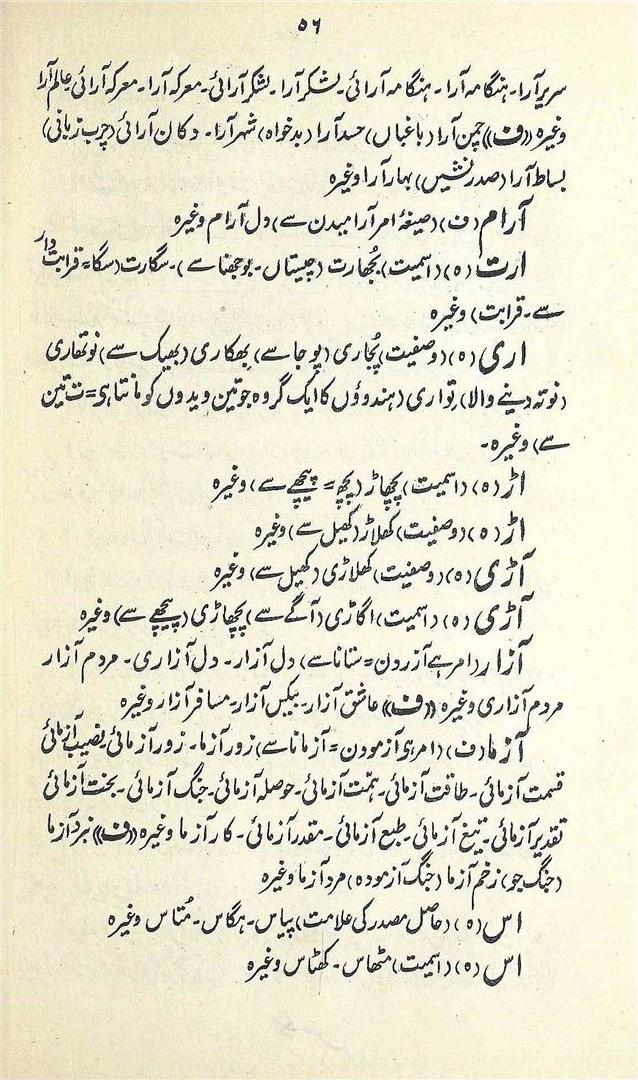 ۵۶
سریر آرا۔ ہنگامہ آرا۔ ہنگامہ آرائی۔ لشکر آرا۔ لشکر آرائی۔ معرکہ آرا۔ معرکہ آرائی۔ عالم آرا
وغیرہ ((ف)) چمن آرا (باغباں) حسد آرا (بدخواہ) شہر آرا۔ دکان آرائی (چرب زبانی)
بساط آرا (صدر نشیں) بہار آرا وغیرہ
آرام (ف) (صیغۂ امر آرامیدن سے) دل آرام وغیرہ
ارت (ہ) (اسمیت) بُجھارت (چیستاں۔ بوجھنا سے)۔ سگارت (سگا = قرابت دار
سے۔ قرابت) وغیرہ
اری (ہ) (وصفیت) پُجاری (پوجا سے) بھکاری (بھیک سے) نوتھاری
(نوتہ دینے والا) تِواری (ہندوؤں کا ایک گروہ جو تین ویدوں کو مانتا ہی = ت تین
سے) وغیرہ۔
اڑ (ہ) (اسمیت) پچھاڑ (پچھ = پیچھے سے) وغیرہ
اڑ (ہ) (وصفیت) کھلاڑ (کھیل سے) وغیرہ
آڑی (ہ) (وصفیت) کھلاڑی (کھیل سے) وغیرہ
آڑی (ہ) (اسمیت) اگاڑی (آگے سے) پچھاڑی (پیچھے سے) وغیرہ
آزار (امر ہے آزردن = ستانا سے) دل آزار۔ دل آزاری۔ مردم آزار
مردم آزاری وغیرہ ((ف)) عاشق آزار۔ بیکس آزار۔ مسافر آزار وغیرہ
آزما (ف) (امر ہی آزمودن = آزمانا سے) زور آزما۔ زور آزمائی۔ نصیب آزمائی
قسمت آزمائی۔ طاقت آزمائی۔ ہمّت آزمائی۔ حوصلہ آزمائی۔ جنگ آزمائی۔ بخت آزمائی
تقدیر آزمائی۔ تیغ آزمائی۔ طبع آزمائی۔ مقدر آزمائی۔ کار آزما وغیرہ ((ف)) نبرد آزما
(جنگ جو) زخم آزما (جنگ آزمودہ) مرد آزما وغیرہ
اس (ہ) (حاصل مصدر کی علامت) پیاس۔ ہگاس۔ مُتاس وغیرہ
اس (ہ) (اسمیت) مٹھاس۔ کھٹاس وغیرہ